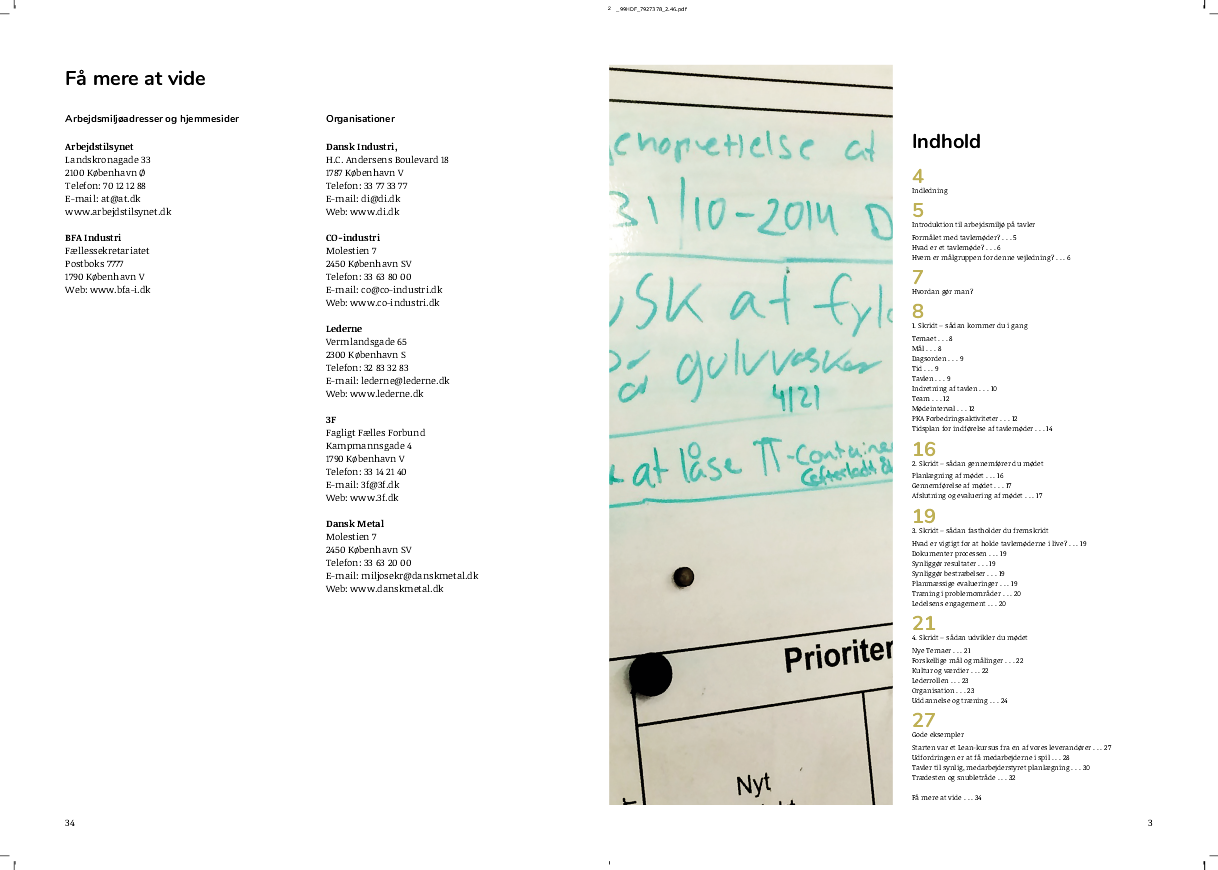 2 _99HOF_7927378_2.46.pdf
Få mere at vide
Arbejdsmiljøadresser og hjemmesider
Arbejdstilsynet
Landskronagade 33
2100 København Ø
Telefon: 70 12 12 88
E-mail: at@at.dk
www.arbejdstilsynet.dk
BFA Industri
Fællessekretariatet
Postboks 7777
1790 København V
Web: www.bfa-i.dk
Organisationer
Dansk Industri,
H.C. Andersens Boulevard 18
1787 København V
Telefon: 33 77 33 77
E-mail: di@di.dk
Web: www.di.dk
CO-industri
Molestien 7
2450 København SV
Telefon: 33 63 80 00
E-mail: co@co-industri.dk
Web: www.co-industri.dk
Lederne
Vermlandsgade 65
2300 København S
Telefon: 32 83 32 83
E-mail: lederne@lederne.dk
Web: www.lederne.dk
3F
Fagligt Fælles Forbund
Kampmannsgade 4
1790 København V
Telefon: 33 14 21 40
E-mail: 3f@3f.dk
Web: www.3f.dk
Dansk Metal
Molestien 7
2450 København SV
Telefon: 33 63 20 00
E-mail: miljosekr@danskmetal.dk
Web: www.danskmetal.dk
34
at
31/10-2014 D
at
gulvvasker
4121
at låse π-Container
Prioriter
Nyt
Indhold
4
Indledning
5
Introduktion til arbejdsmiljø på tavler
Formålet med tavlemøder? . . . 5
Hvad er et tavlemøde? . . . 6
Hvem er målgruppen for denne vejledning? . . . 6
7
Hvordan gør man?
8
1. Skridt – sådan kommer du i gang
Temaet . . . 8
Mål . . . 8
Dagsorden . . . 9
Tid . . . 9
Tavlen . . . 9
Indretning af tavlen . . . 10
Team . . . 12
Mødeinterval . . . 12
PKA Forbedringsaktiviteter . . . 12
Tidsplan for indførelse af tavlemøder . . . 14
16
2. Skridt – sådan gennemfører du mødet
Planlægning af mødet . . . 16
Gennemførelse af mødet . . . 17
Afslutning og evaluering af mødet . . . 17
19
3. Skridt – sådan fastholder du fremskridt
Hvad er vigtigt for at holde tavlemøderne i live? . . . 19
Dokumenter processen . . . 19
Synliggør resultater . . . 19
Synliggør bestræbelser . . . 19
Planmæssige evalueringer . . . 19
Træning i problemområder . . . 20
Ledelsens engagement . . . 20
21
4. Skridt – sådan udvikler du mødet
Nye Temaer . . . 21
Forskellige mål og målinger . . . 22
Kultur og værdier . . . 22
Lederrollen . . . 23
Organisation . . . 23
Uddannelse og træning . . . 24
27
Gode eksempler
Starten var et Lean-kursus fra en af vores leverandører . . . 27
Udfordringen er at få medarbejderne i spil . . . 28
Tavler til synlig, medarbejderstyret planlægning . . . 30
Trædesten og snubletråde . . . 32
Få mere at vide . . . 34
3